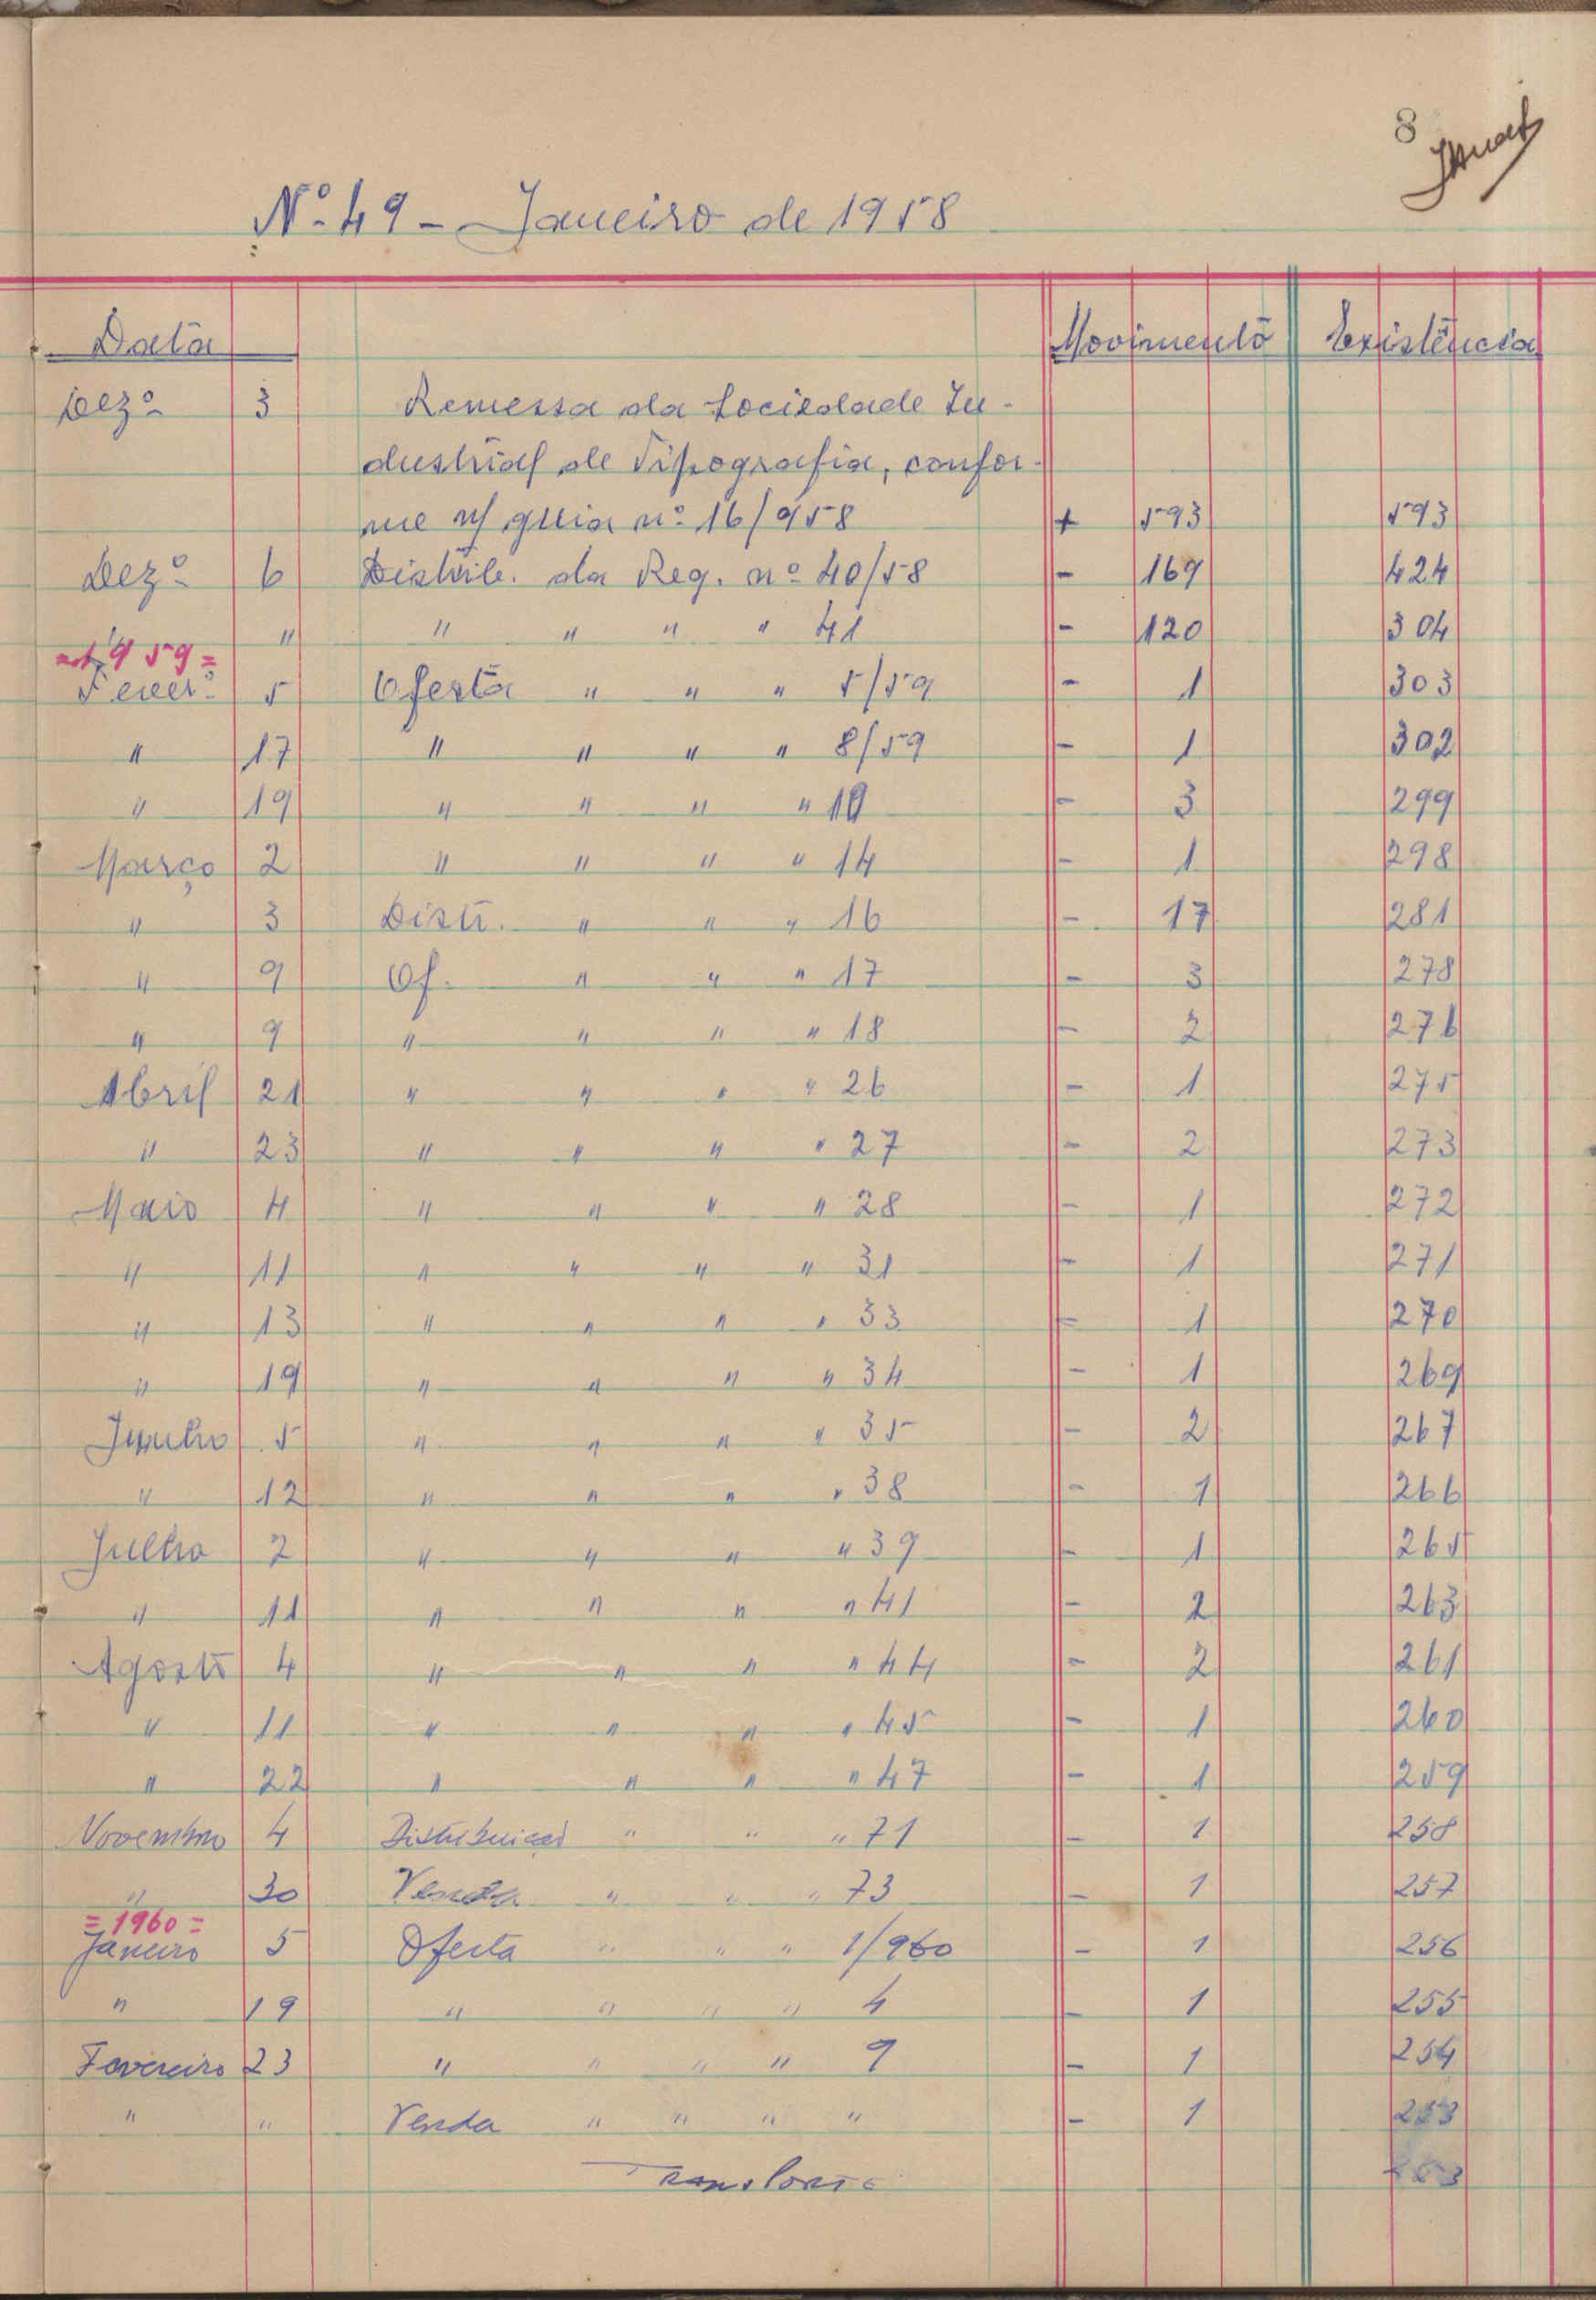 8
Nº 49 - Janeiro de 1958
Data Movimento Existência
Dezº 3 Remessa da Sociedade In-
dustrial de Tipografia, confor-
me n/ guia nº 16/958 + 593 593
Dezº 6 Distrib. da Reg. nº 40/58 - 169 424
" " " " " " 41 - 120 304
= 1959 =
Feverº 5 Oferta " " " 5/59 - 1 303
" 17 " " " " 8/59 - 1 302
" 19 " " " " 10 - 3 299
Março 2 " " " " 14 - 1 298
" 3 Distr. " " " 16 - 17 281
" 9 Of. " " " 17 - 3 278
" 9 " " " " 18 - 2 276
Abril 21 " " " " 26 - 1 275
" 23 " " " " 27 - 2 273
Maio 4 " " " " 28 - 1 272
" 11 " " " " 31 - 1 271
" 13 " " " " 33 - 1 270
" 19 " " " " 34 - 1 269
Junho 5 " " " " 35 - 2 267
" 12 " " " " 38 - 1 266
Julho 2 " " " " 39 - 1 265
" 11 " " " " 41 - 2 263
Agosto 4 " " " " 44 - 2 261
" 11 " " " " 45 - 1 260
" 22 " " " " 47 - 1 259
Novembro 4 Distribuição " " " 71 - 1 258
" 30 Venda " " " 73 - 1 257
= 1960 =
Janeiro 5 Oferta " " " 1/960 - 1 256
" 19 " " " " 4 - 1 255
Fevereiro 23 " " " " 9 - 1 254
" " Venda " " " " - 1 253
Transporte 253